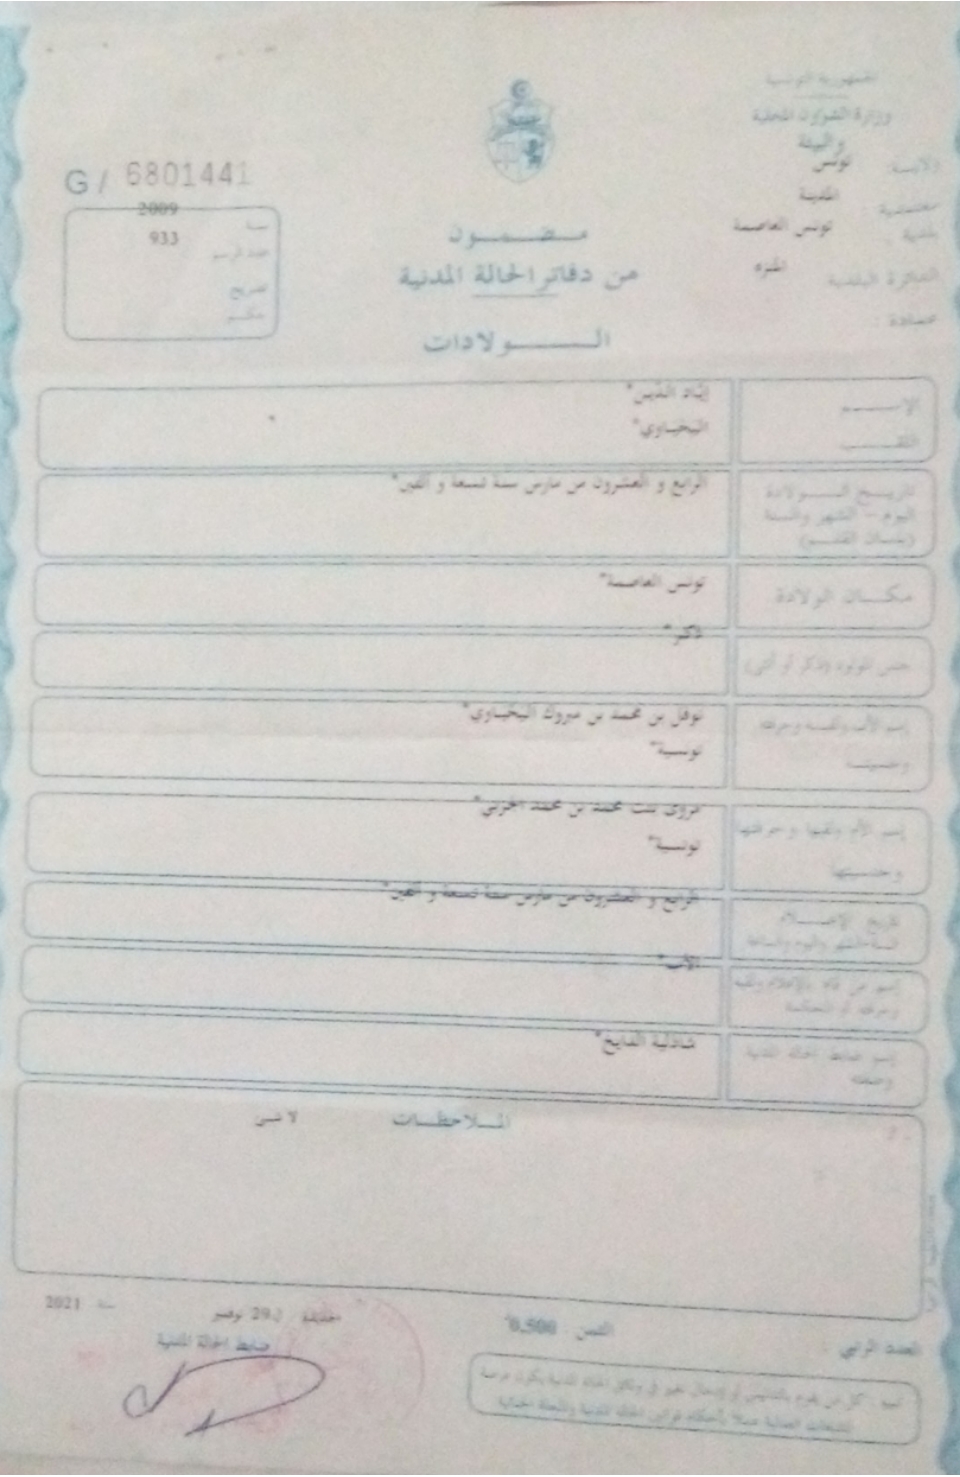 الجمهورية التونسية
وزارة الشؤون المحلية
والبيئة
الولاية: تونس
معتمدية المدينة
بلدية : تونس العاصمة
الدائرة البلدية المنزه
عمادة :
G / 6801441
سنة 2009
عدد الرسم 933
تصريح
حكم
مضمون
من دفاتر الحالة المدنية
الولادات
الإسم إيّاد الدّين*
اللقب اليحياوي*
تاريخ الولادة الرابع و العشرون من مارس سنة تسعة و ألفين*
اليوم - الشهر والسنة
(بلسان القلم)
مكان الولادة تونس العاصمة*
جنس المولود (ذكر أو أنثى) ذكر*
إسم الأب ولقبه وحرفته نوفل بن محمد بن مبروك اليحياوي*
وجنسيته تونسية*
إسم الأم ولقبها وحرفتها مروى بنت محمد بن محمد
وجنسيتها تونسية*
تاريخ الإعلام الرابع و العشرون من مارس سنة تسعة و ألفين*
السنة والشهر واليوم والساعة
إسم من قام بالإعلام ولقبه الأب*
وحرفته أو المحكمة
إسم ضابط الحالة المدنية شاذلية
وصفته
الملاحظات لا شيء
العدد الرتبي :
الثمن 0,500*
في 29 نوفمبر سنة 2021
ضابط الحالة المدنية